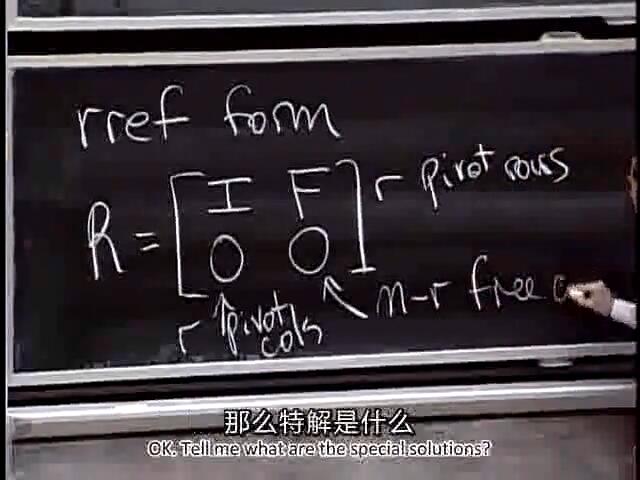 rref form
R = [ I F
0 0 ] r pivot rows
r pivot cols
n-r free
那么特解是什么
OK. Tell me what are the special solutions?